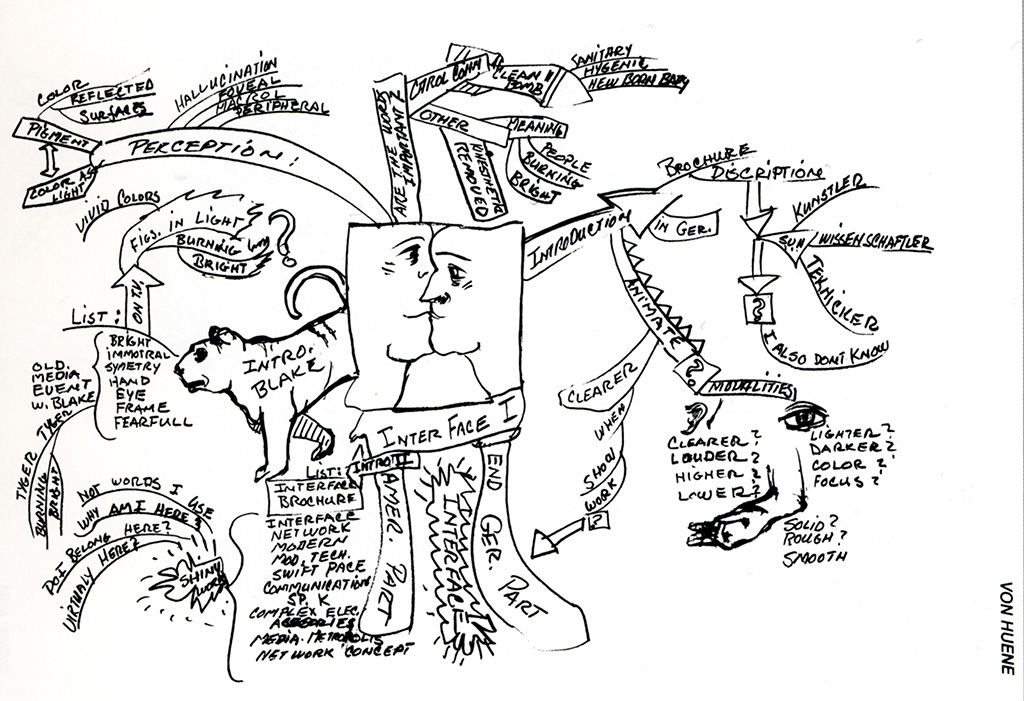 COLOR
REFLECTED
SURFACES
PIGMENT
COLOR AS
LIGHT
HALLUCINATION
FOVEAL
PERIPHERAL
PERCEPTION:
VIVID COLORS
FIGS. IN LIGHT
BURNING
BRIGHT
?
ON T.V.
LIST:
BRIGHT
IMMOTRAL
SYMETRY
HAND
EYE
FRAME
FEARFULL
OLD.
MEDIA
EVENT
W. BLAKE
TYGER
TYGER
BURNING
BRIGHT
INTRO.
BLAKE
ARE THE WORDS
IMPORTANT?
CAROL COHN
CLEAN
BOMB
SANITARY
HYGENIC
NEW BORN BABY
OTHER
MEANING
PEOPLE
BURNING
BRIGHT
KINESTHETIC
REMOVED
INTRODUCTION
BROCHURE
DISCRIPTION
IN GER.
KUNSTLER
SUN
WISSENSCHAFTLER
TEKNICKER
?
I ALSO DONT KNOW
ANIMATE
?
MODALITIES
CLEARER
WHEN
SHOW
WORK
?
CLEARER?
LOUDER?
HIGHER?
LOWER?
LIGHTER?
DARKER?
COLOR?
FOCUS?
SOLID?
ROUGH?
SMOOTH
INTERFACE I
INTRO II
LIST:
INTERFACE
BROCHURE
INTERFACE
NETWORK
MODERN
MOD. TECH.
SWIFT PACE
COMMUNICATION
SP. K
COMPLEX ELEC.
MEDIA. METROPOLIS
NETWORK CONCEPT
AMER PART
INTERFACE
END GER. PART
NOT WORDS I USE
WHY AM I HERE?
DO I BELONG HERE?
VIRTUALY HERE?
SHINY
WORD
VON HUENE